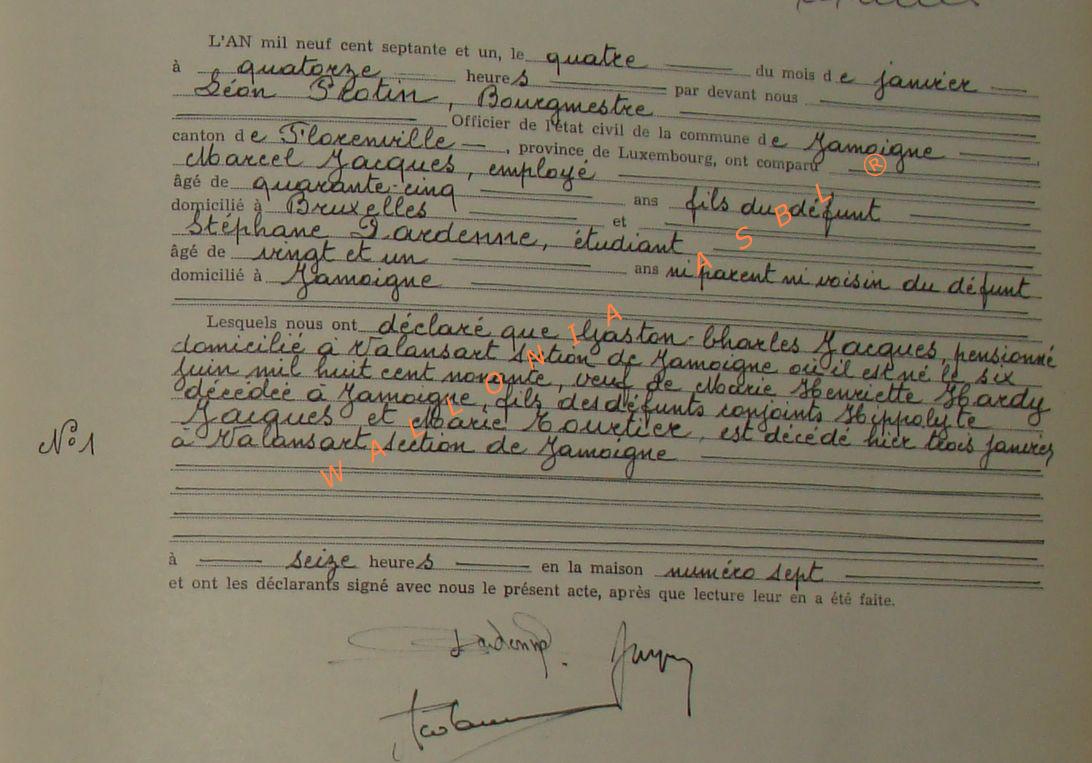 L'AN mil neuf cent septante et un, le quatre du mois de janvier
à quatorze heures par devant nous
Léon Protin, Bourgmestre
Officier de l'état civil de la commune de Jamoigne
canton de Florenville, province de Luxembourg, ont comparu
Marcel Jacques, employé
âgé de quarante-cinq ans fils du défunt
domicilié à Bruxelles et
Stéphane Dardenne, étudiant
âgé de vingt et un ans ni parent ni voisin du défunt
domicilié à Jamoigne
Lesquels nous ont déclaré que Gaston-Charles Jacques, pensionné
domicilié à Valansart section de Jamoigne où il est né le six
juin mil huit cent nonante, veuf de Marie Henriette Hardy
décédée à Jamoigne, fils des défunts conjoints Hippolyte
Jacques et Marie Tourtier, est décédé hier trois janvier
N° 1
à Valansart section de Jamoigne
à seize heures en la maison numéro sept
et ont les déclarants signé avec nous le présent acte, après que lecture leur en a été faite.
Dardenne.
WALLONIA ASBL ®